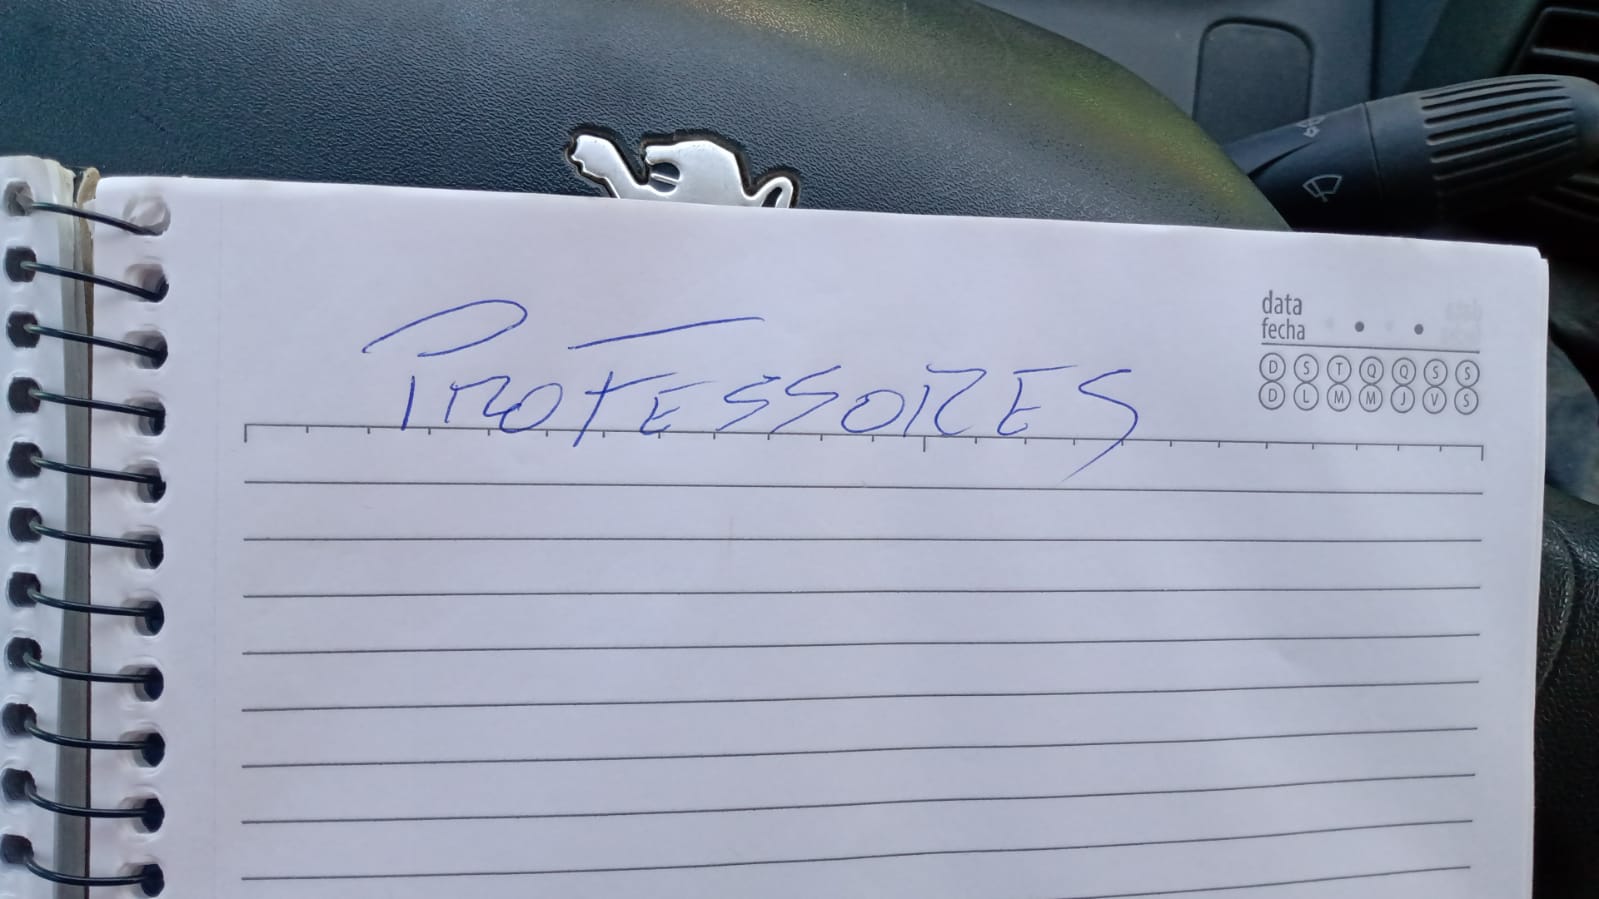 PROFESSORES
data
fecha
D S T Q Q S S
D L M M J V S